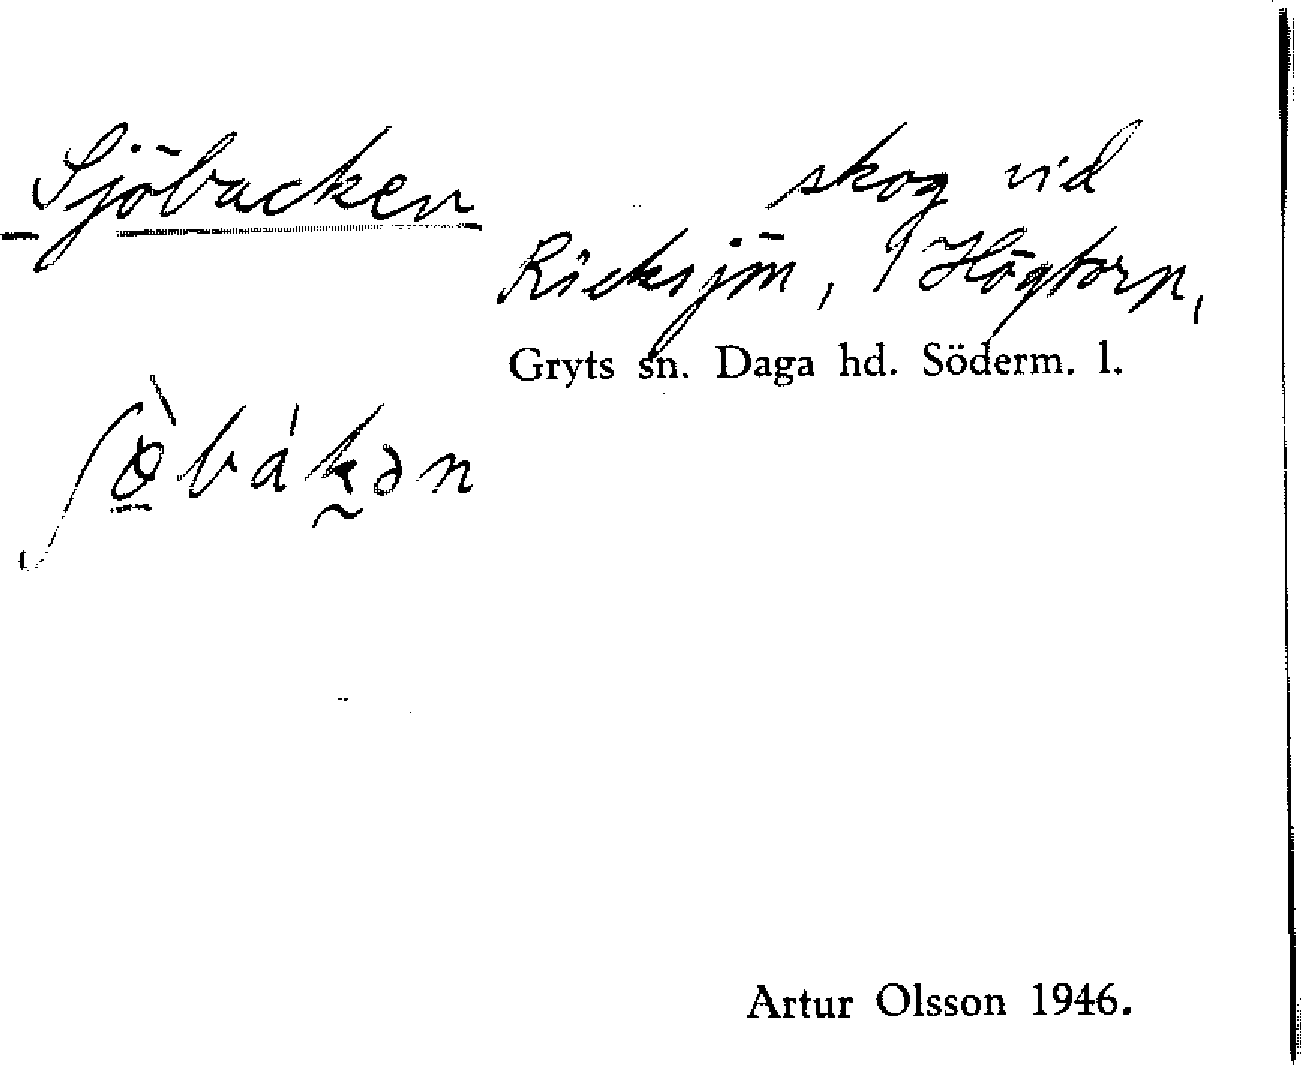 Sjöbacken skog vid
Ricksjön, Högtorp,
Gryts sn. Daga hd. Söderm. l.
Artur Olsson 1946.